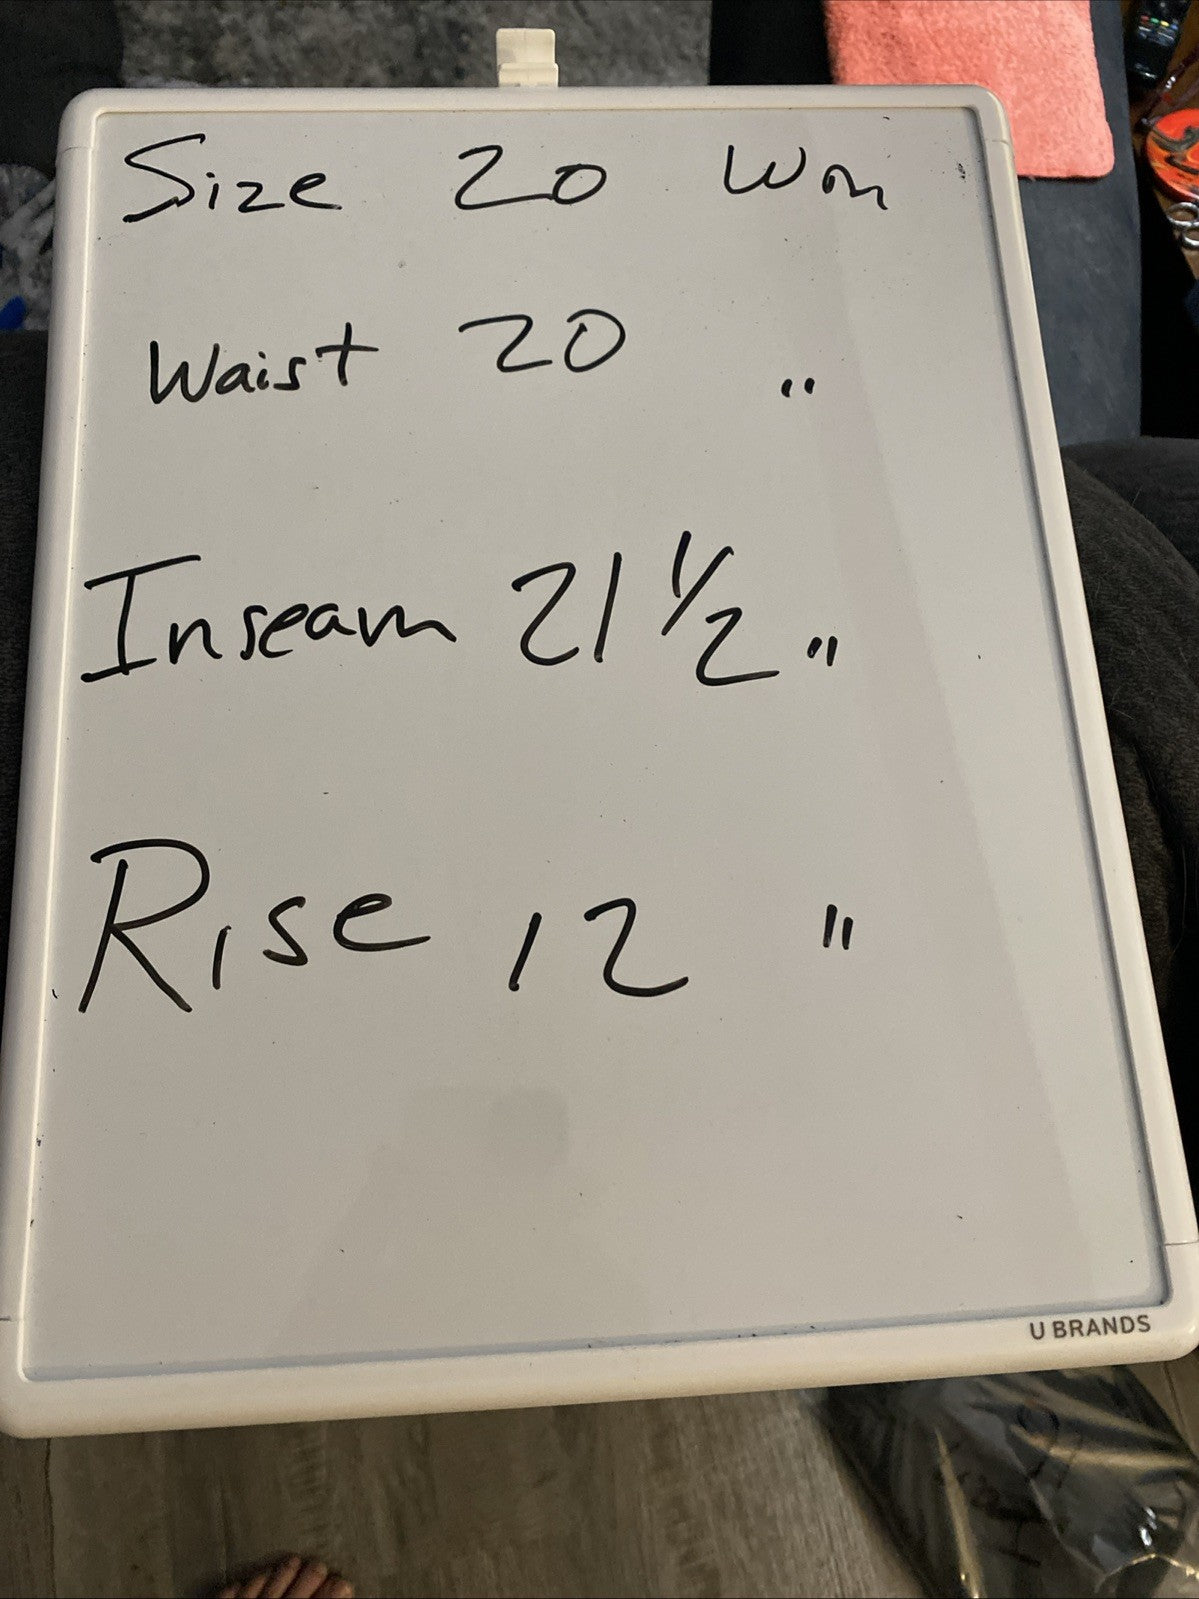 Size 20 Wom
Waist 20 "
Inseam 21 1/2 "
Rise 12 "
U BRANDS